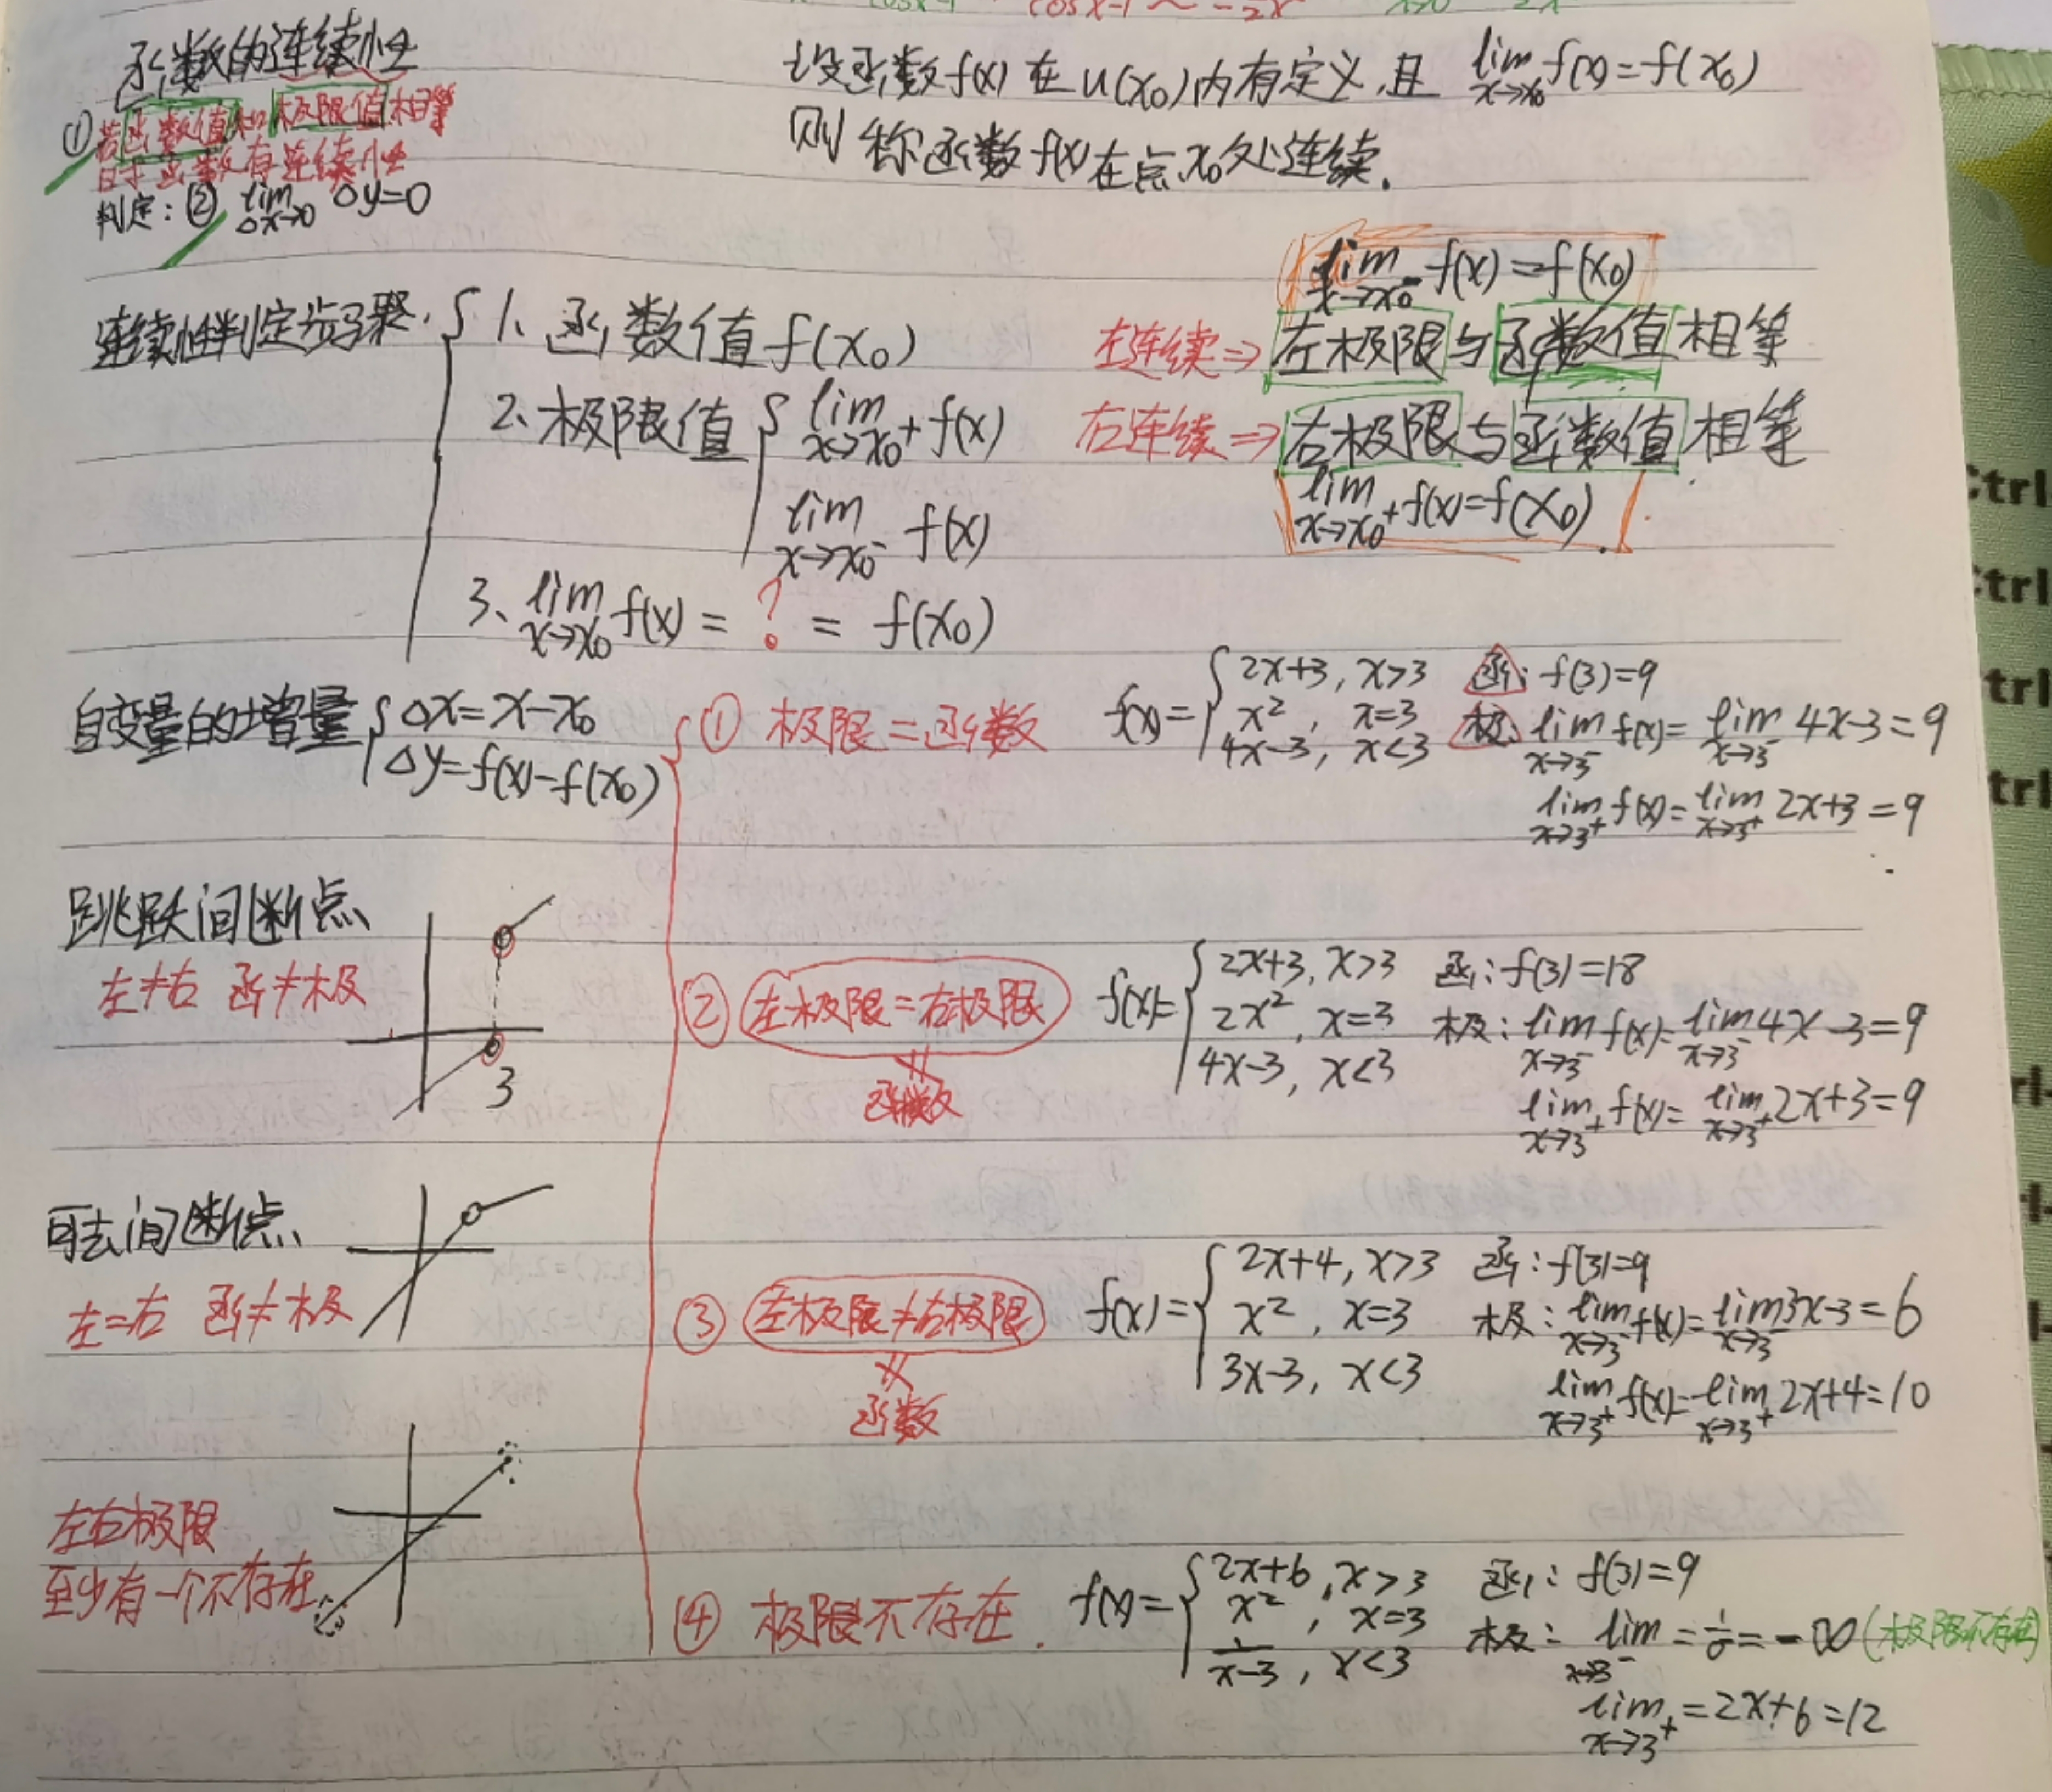 函数的连续性
①若函数值和极限值相等
则函数有连续性
判定：② lim Δx→0 Δy=0
设函数f(x)在u(x₀)内有定义,且 lim x→x₀ f(x)=f(x₀)
则称函数f(x)在点x₀处连续.
连续性判定步骤. { 1、函数值f(x₀)
2、极限值 { lim x→x₀⁺ f(x)
lim x→x₀⁻ f(x)
3、lim x→x₀ f(x) = ? = f(x₀)
lim x→x₀⁻ f(x)=f(x₀)
左连续⇒左极限与函数值相等
右连续⇒右极限与函数值相等
lim x→x₀⁺ f(x)=f(x₀)
自变量的增量 { Δx=x-x₀
Δy=f(x)-f(x₀)
① 极限=函数
f(x)= { 2x+3, x>3
x², x=3
4x-3, x<3
函: f(3)=9
极: lim x→3⁻ f(x)= lim x→3⁻ 4x-3=9
lim x→3⁺ f(x)= lim x→3⁺ 2x+3=9
跳跃间断点
左≠右 函≠极
3
② 左极限=右极限
≠
函数
f(x)= { 2x+3, x>3
2x², x=3
4x-3, x<3
函: f(3)=18
极: lim x→3⁻ f(x)= lim x→3⁻ 4x-3=9
lim x→3⁺ f(x)= lim x→3⁺ 2x+3=9
可去间断点
左=右 函≠极
③ 左极限≠右极限
≠
函数
f(x)= { 2x+4, x>3
x², x=3
3x-3, x<3
函: f(3)=9
极: lim x→3⁻ f(x)= lim x→3⁻ 3x-3=6
lim x→3⁺ f(x)= lim x→3⁺ 2x+4=10
左右极限
至少有一个不存在
④ 极限不存在.
f(x)= { 2x+6, x>3
x², x=3
1/(x-3), x<3
函: f(3)=9
极: lim x→3⁻ = 1/0 = -∞ (极限不存在)
lim x→3⁺ =2x+6=12